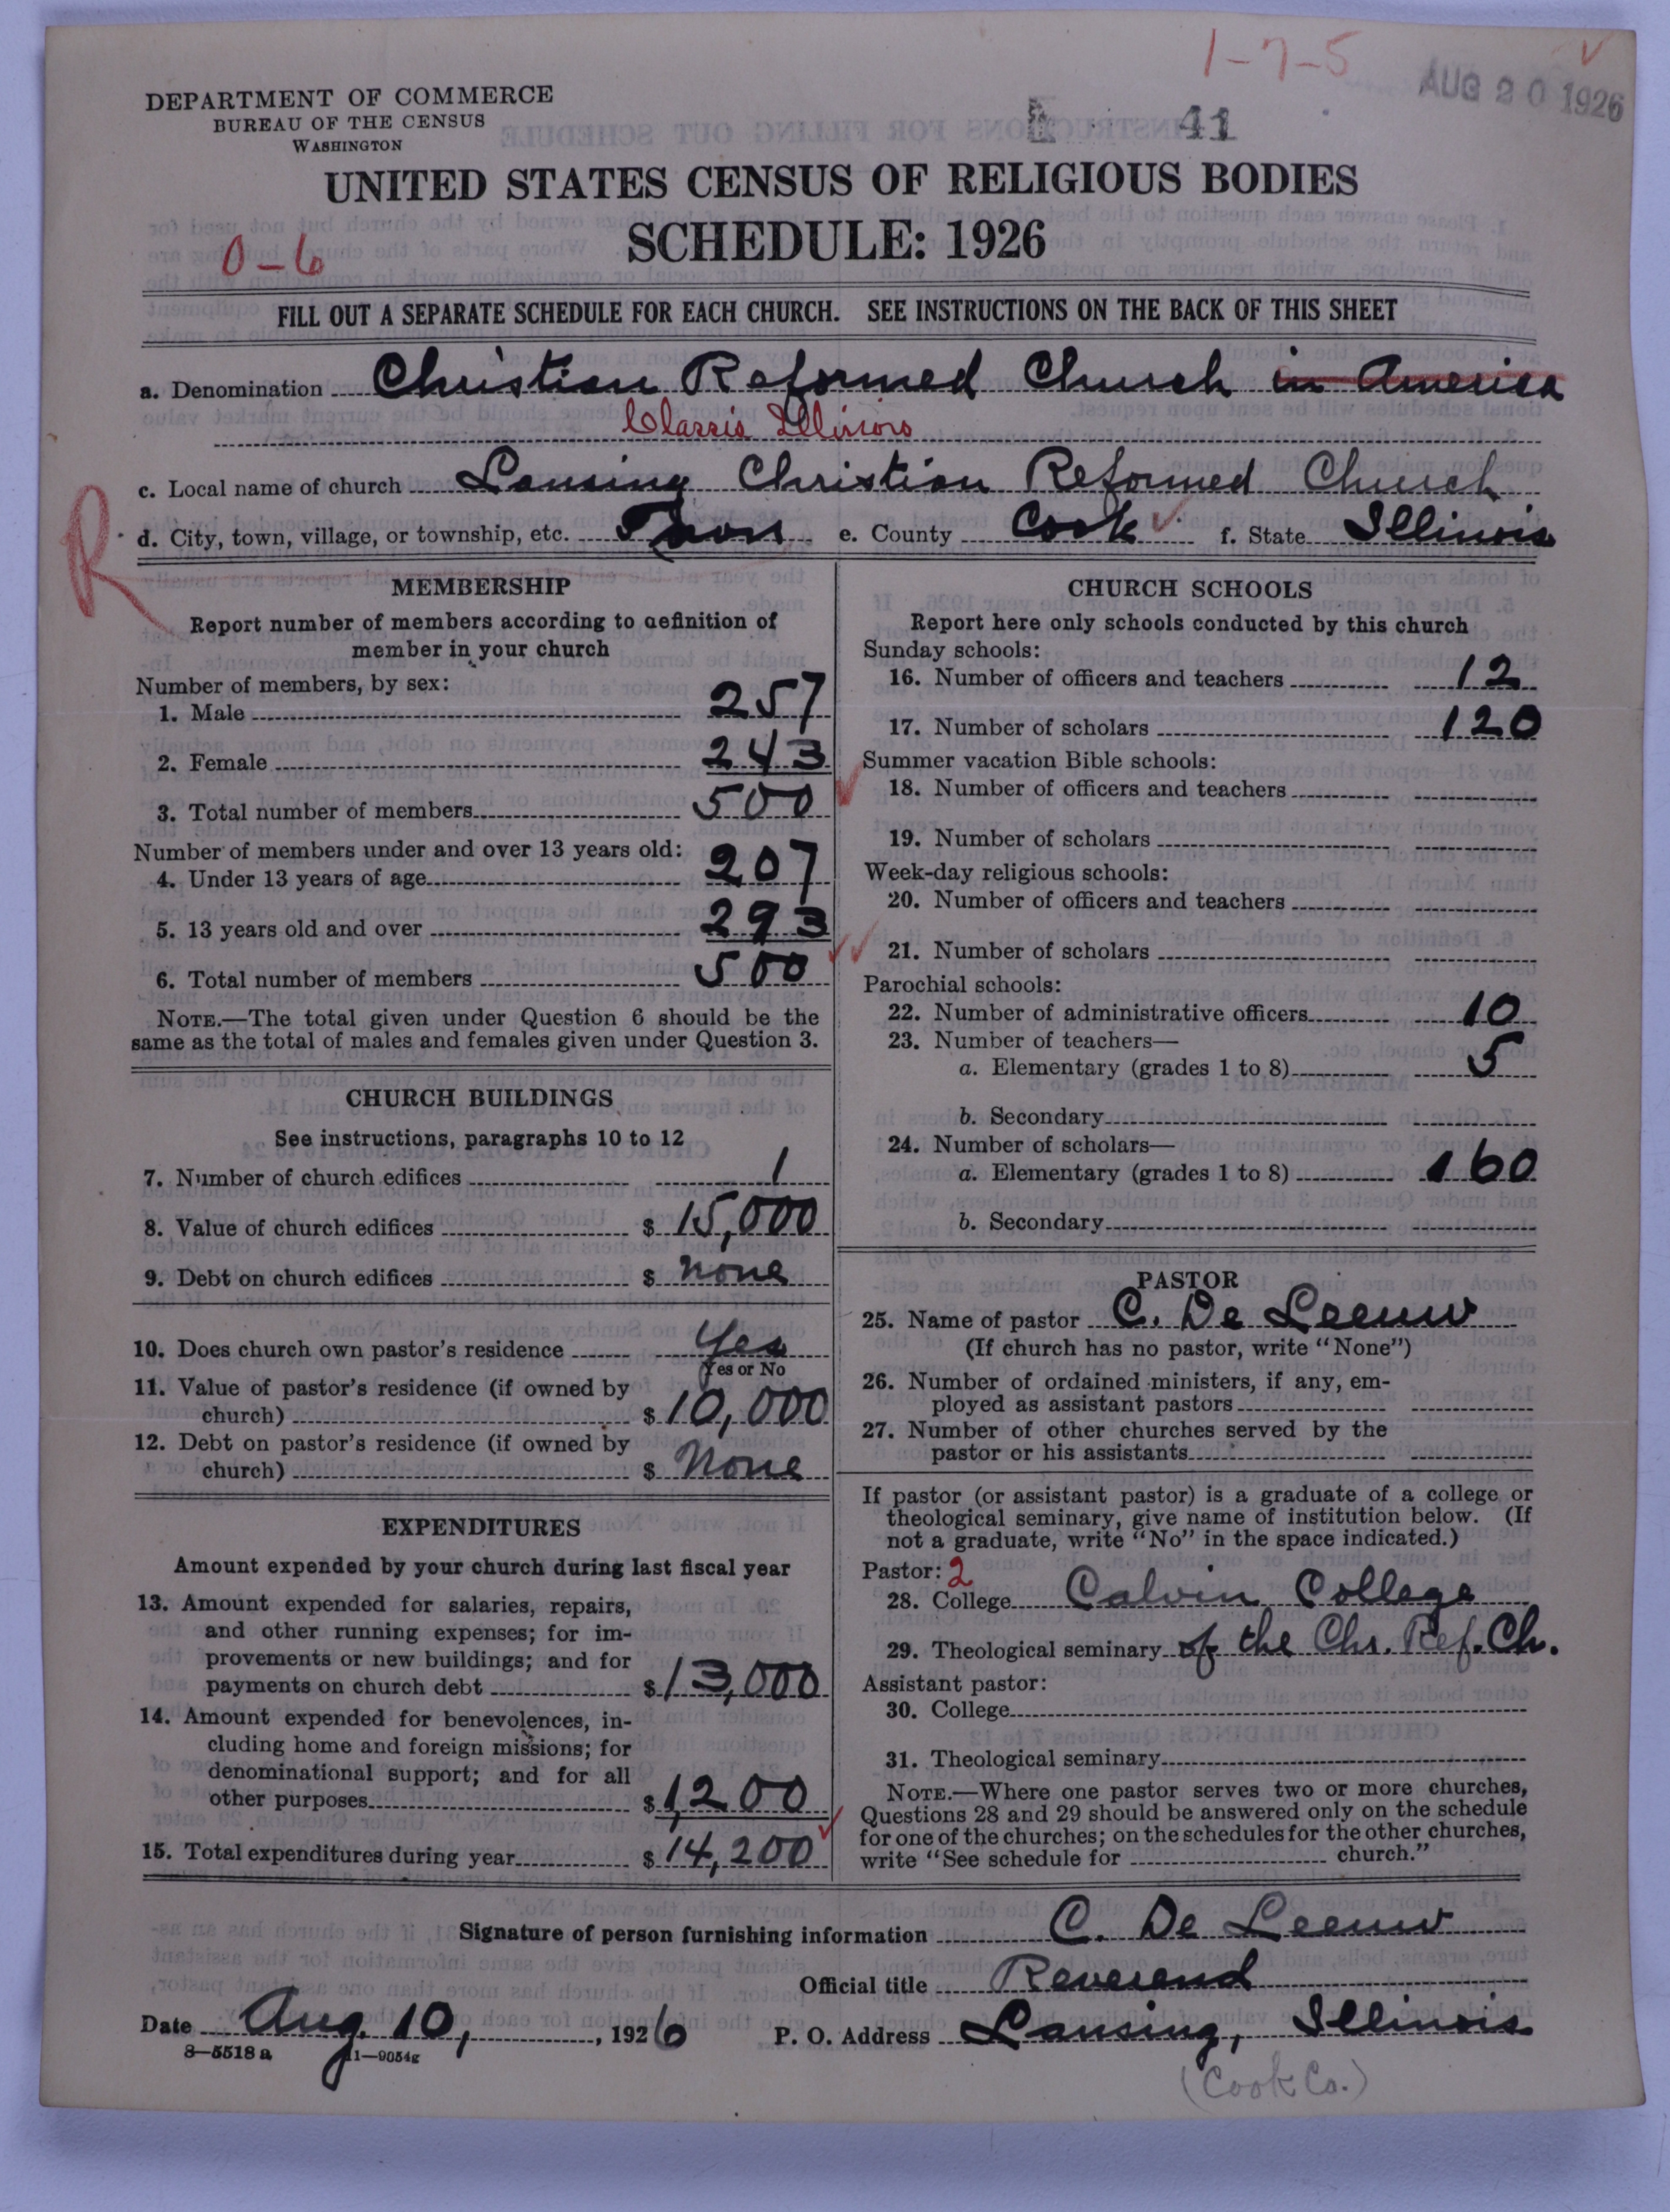 1-7-5
AUG 20 1926
DEPARTMENT OF COMMERCE
BUREAU OF THE CENSUS
WASHINGTON
41
UNITED STATES CENSUS OF RELIGIOUS BODIES
SCHEDULE: 1926
0-6
FILL OUT A SEPARATE SCHEDULE FOR EACH CHURCH. SEE INSTRUCTIONS ON THE BACK OF THIS SHEET
a. Denomination Christian Reformed Church in America
Classis Illinois
c. Local name of church Lansing Christian Reformed Church
R
d. City, town, village, or township, etc. Town e. County Cook f. State Illinois
MEMBERSHIP
Report number of members according to definition of
member in your church
Number of members, by sex:
1. Male 257
2. Female 243
3. Total number of members 500
Number of members under and over 13 years old:
4. Under 13 years of age 207
5. 13 years old and over 293
6. Total number of members 500
NOTE.—The total given under Question 6 should be the
same as the total of males and females given under Question 3.
CHURCH BUILDINGS
See instructions, paragraphs 10 to 12
7. Number of church edifices 1
8. Value of church edifices $ 15,000
9. Debt on church edifices $ none
10. Does church own pastor's residence Yes
Yes or No
11. Value of pastor's residence (if owned by
church) $ 10,000
12. Debt on pastor's residence (if owned by
church) $ None
EXPENDITURES
Amount expended by your church during last fiscal year
13. Amount expended for salaries, repairs,
and other running expenses; for im-
provements or new buildings; and for
payments on church debt $ 13,000
14. Amount expended for benevolences, in-
cluding home and foreign missions; for
denominational support; and for all
other purposes $ 1,200
15. Total expenditures during year $ 14,200
CHURCH SCHOOLS
Report here only schools conducted by this church
Sunday schools:
16. Number of officers and teachers 12
17. Number of scholars 120
Summer vacation Bible schools:
18. Number of officers and teachers
19. Number of scholars
Week-day religious schools:
20. Number of officers and teachers
21. Number of scholars
Parochial schools:
22. Number of administrative officers 10
23. Number of teachers—
a. Elementary (grades 1 to 8) 5
b. Secondary
24. Number of scholars—
a. Elementary (grades 1 to 8) 160
b. Secondary
PASTOR
25. Name of pastor C. De Leeuw
(If church has no pastor, write "None")
26. Number of ordained ministers, if any, em-
ployed as assistant pastors
27. Number of other churches served by the
pastor or his assistants
If pastor (or assistant pastor) is a graduate of a college or
theological seminary, give name of institution below. (If
not a graduate, write "No" in the space indicated.)
Pastor: 2
28. College Calvin College
29. Theological seminary of the Chr. Ref. Ch.
Assistant pastor:
30. College
31. Theological seminary
NOTE.—Where one pastor serves two or more churches,
Questions 28 and 29 should be answered only on the schedule
for one of the churches; on the schedules for the other churches,
write "See schedule for church."
Signature of person furnishing information C. De Leeuw
Official title Reverend
Date Aug. 10, 1926 P. O. Address Lansing, Illinois
8—5518 a 11—9054g
(Cook Co.)